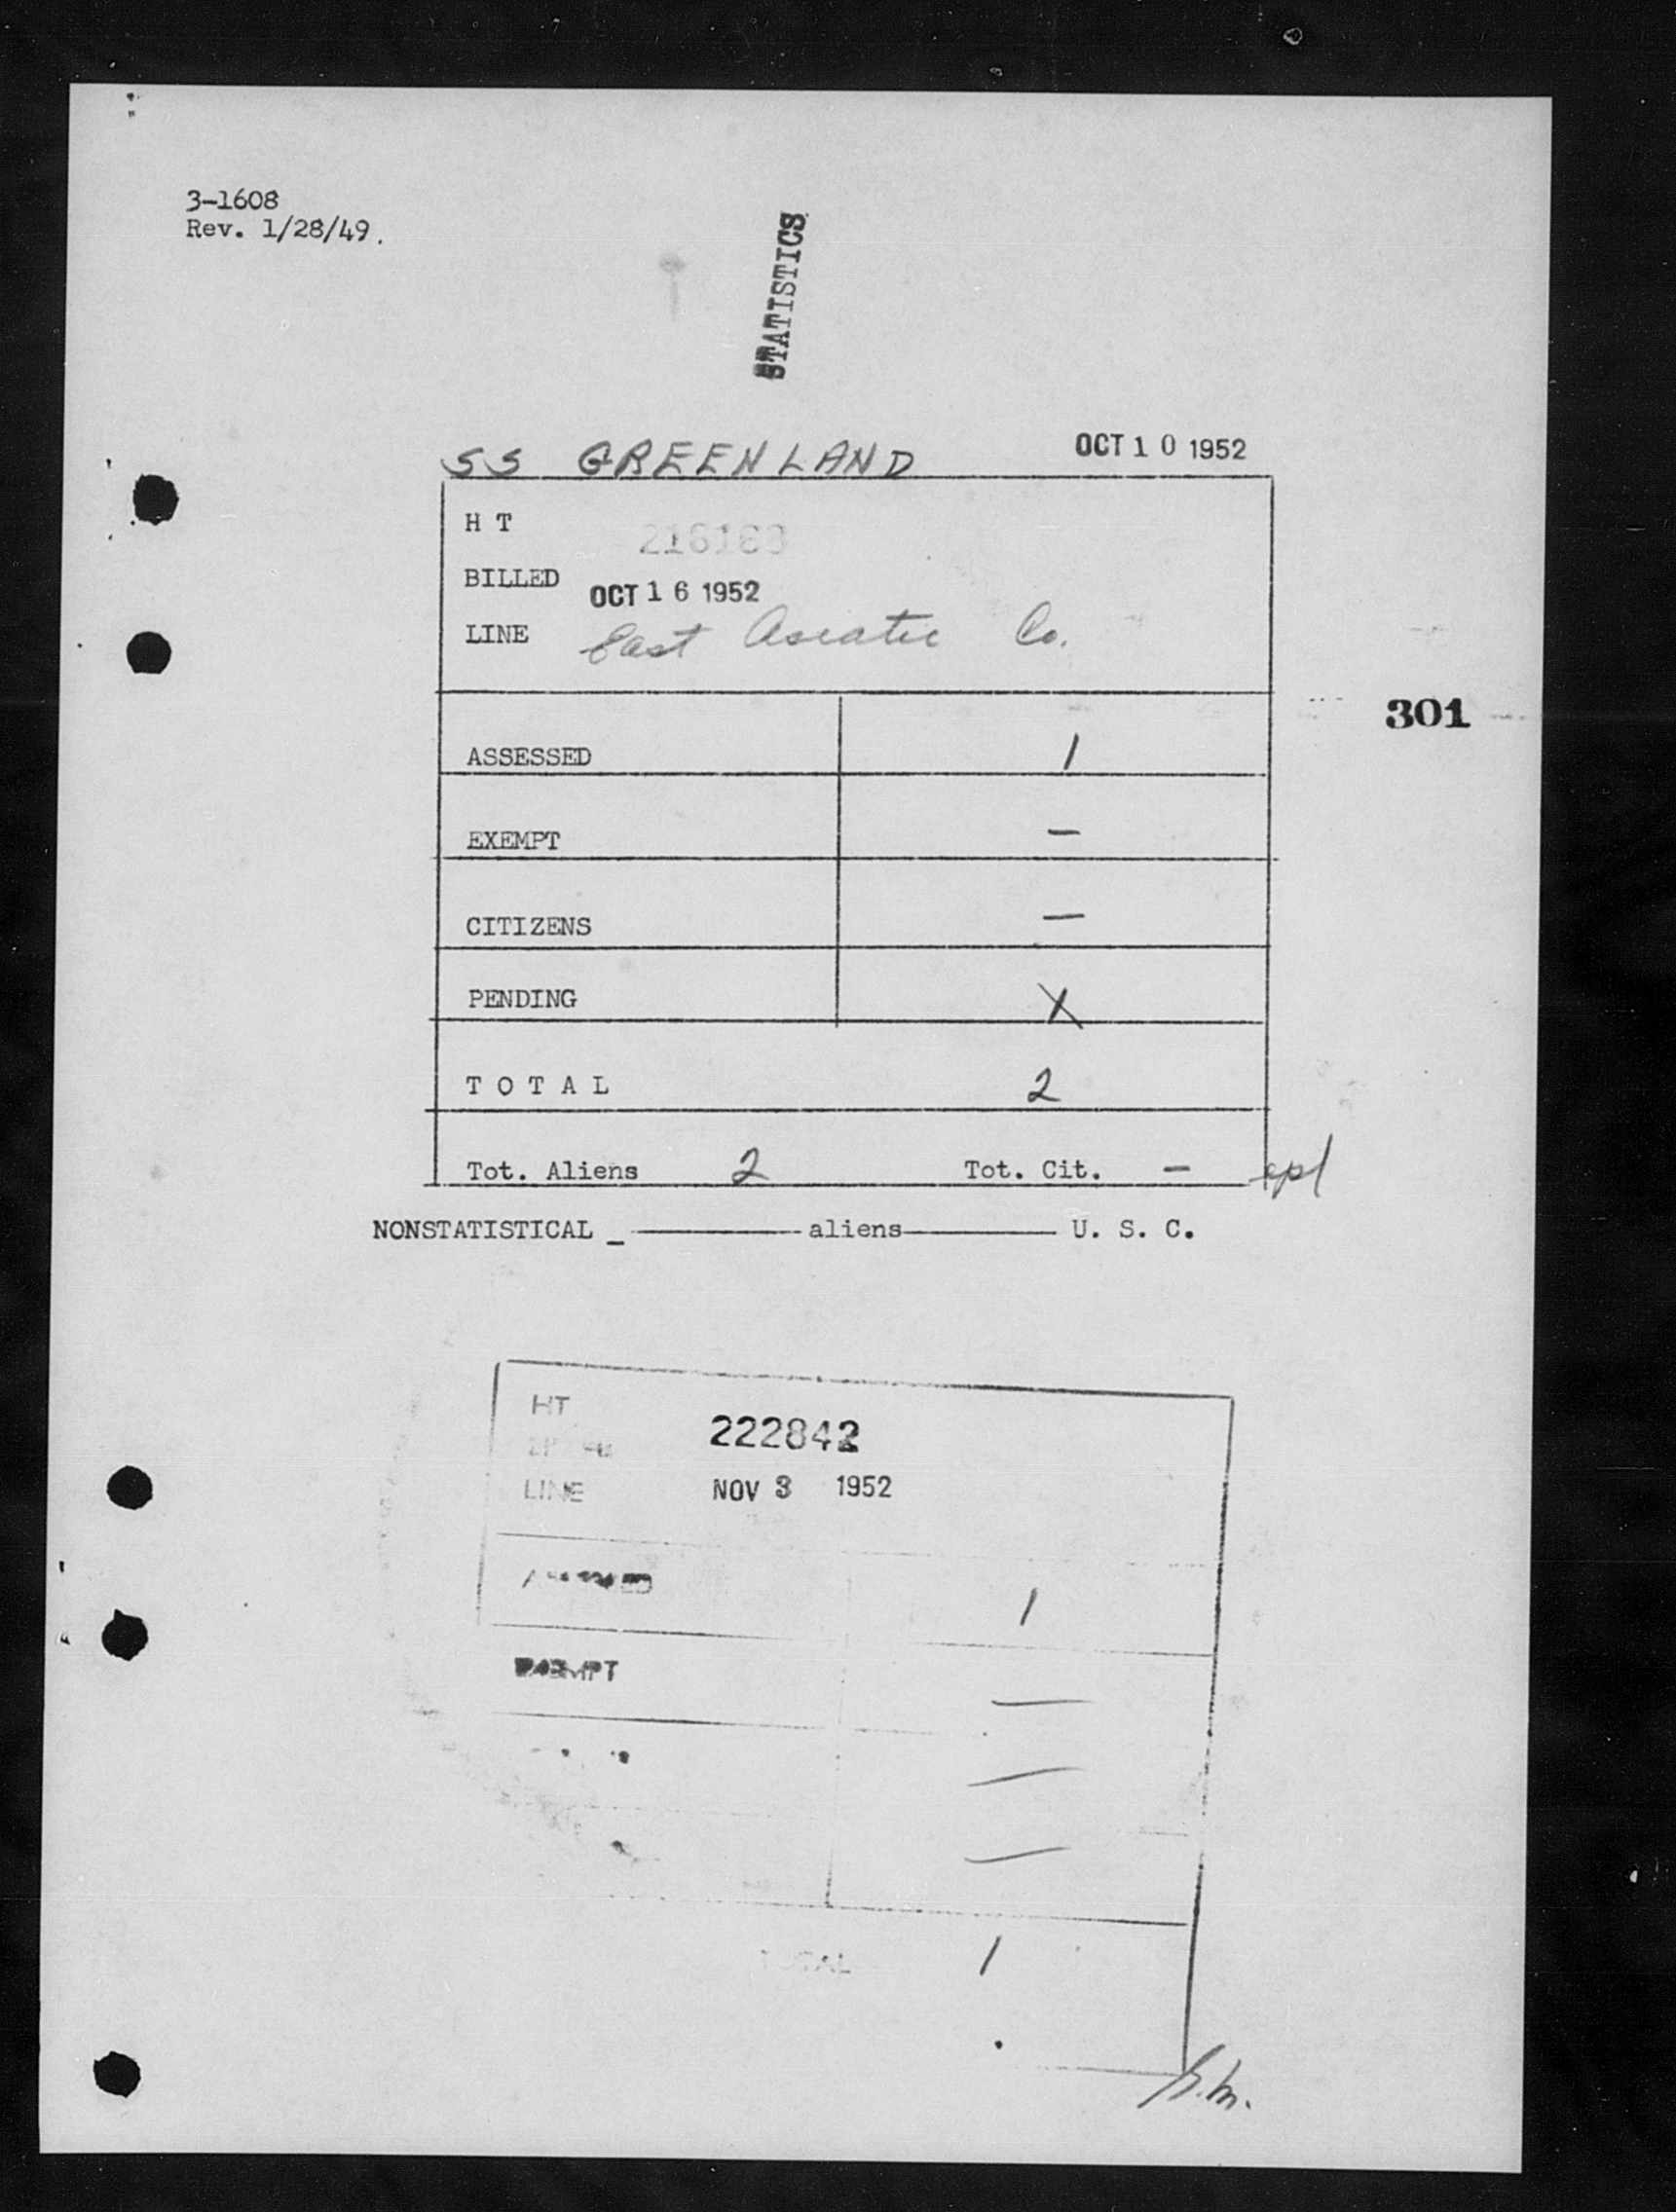 3-1608
Rev. 1/28/49.
STATISTICS
SS GREENLAND OCT 10 1952
H T
BILLED OCT 16 1952
LINE East Asiatic Co.
301
ASSESSED 1
EXEMPT —
CITIZENS —
PENDING X
T O T A L 2
Tot. Aliens 2 Tot. Cit. —
NONSTATISTICAL _ ———— aliens ———— U. S. C.
HT 222842
LINE NOV 3 1952
1
EXEMPT —
—
—
TOTAL 1